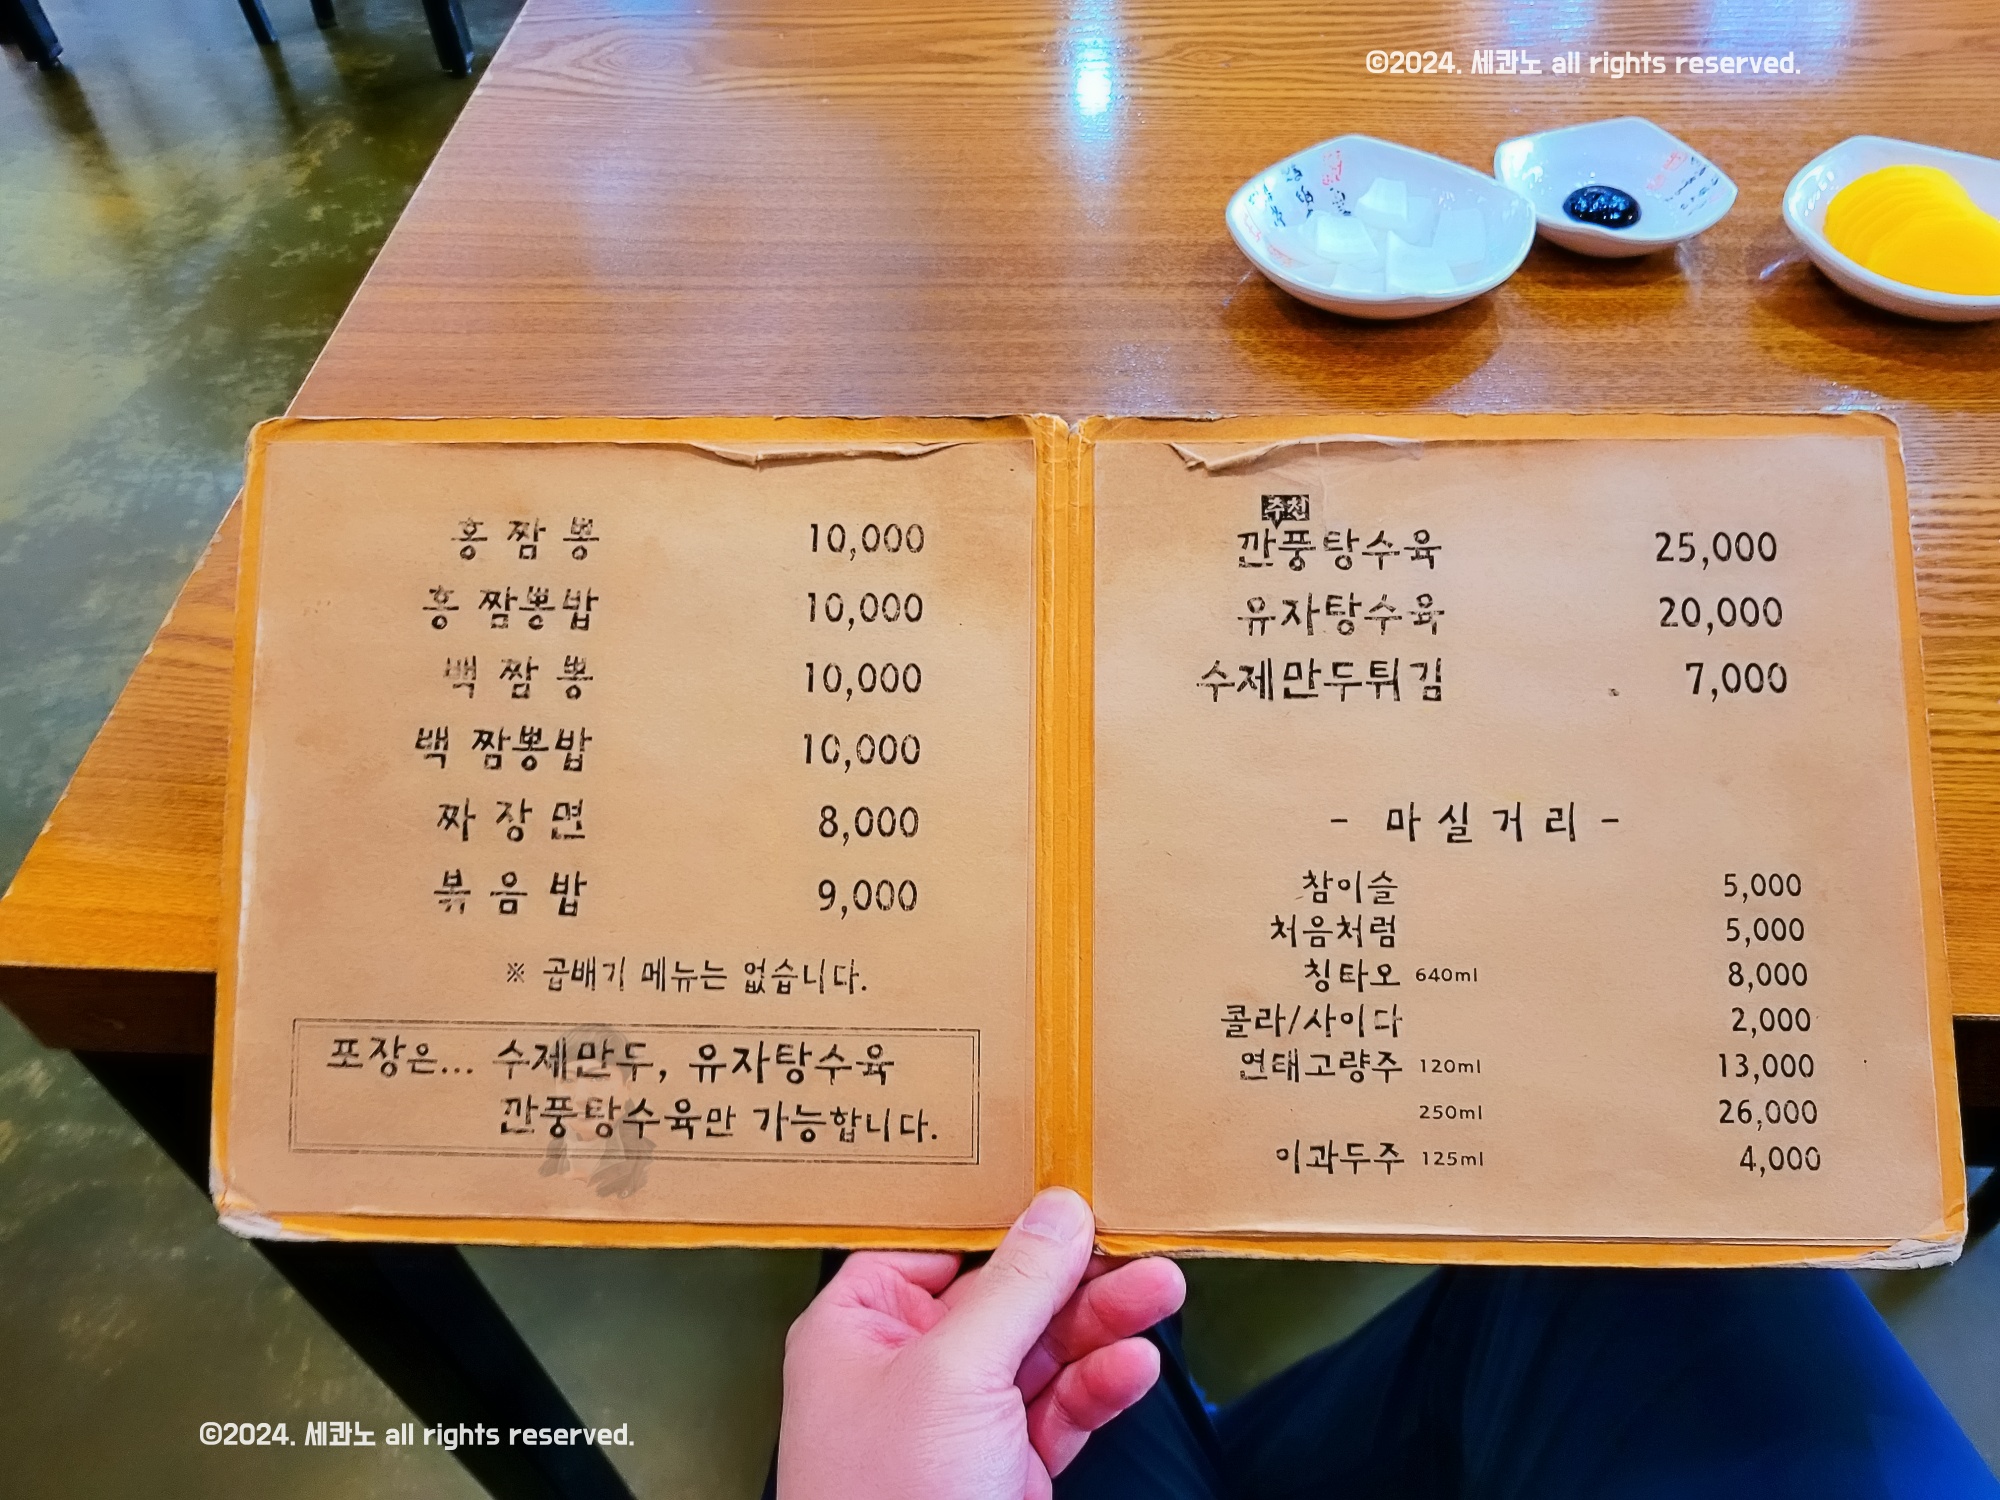 ©2024. 세콴노 all rights reserved.
홍 짬 뽕 10,000
홍 짬뽕밥 10,000
백 짬 뽕 10,000
백 짬뽕밥 10,000
짜 장 면 8,000
볶 음 밥 9,000
※ 곱배기 메뉴는 없습니다.
포장은... 수제만두, 유자탕수육
깐풍탕수육만 가능합니다.
추천
깐풍탕수육 25,000
유자탕수육 20,000
수제만두튀김 7,000
- 마 실 거 리 -
참이슬 5,000
처음처럼 5,000
칭타오 640ml 8,000
콜라/사이다 2,000
연태고량주 120ml 13,000
250ml 26,000
이과두주 125ml 4,000
©2024. 세콴노 all rights reserved.